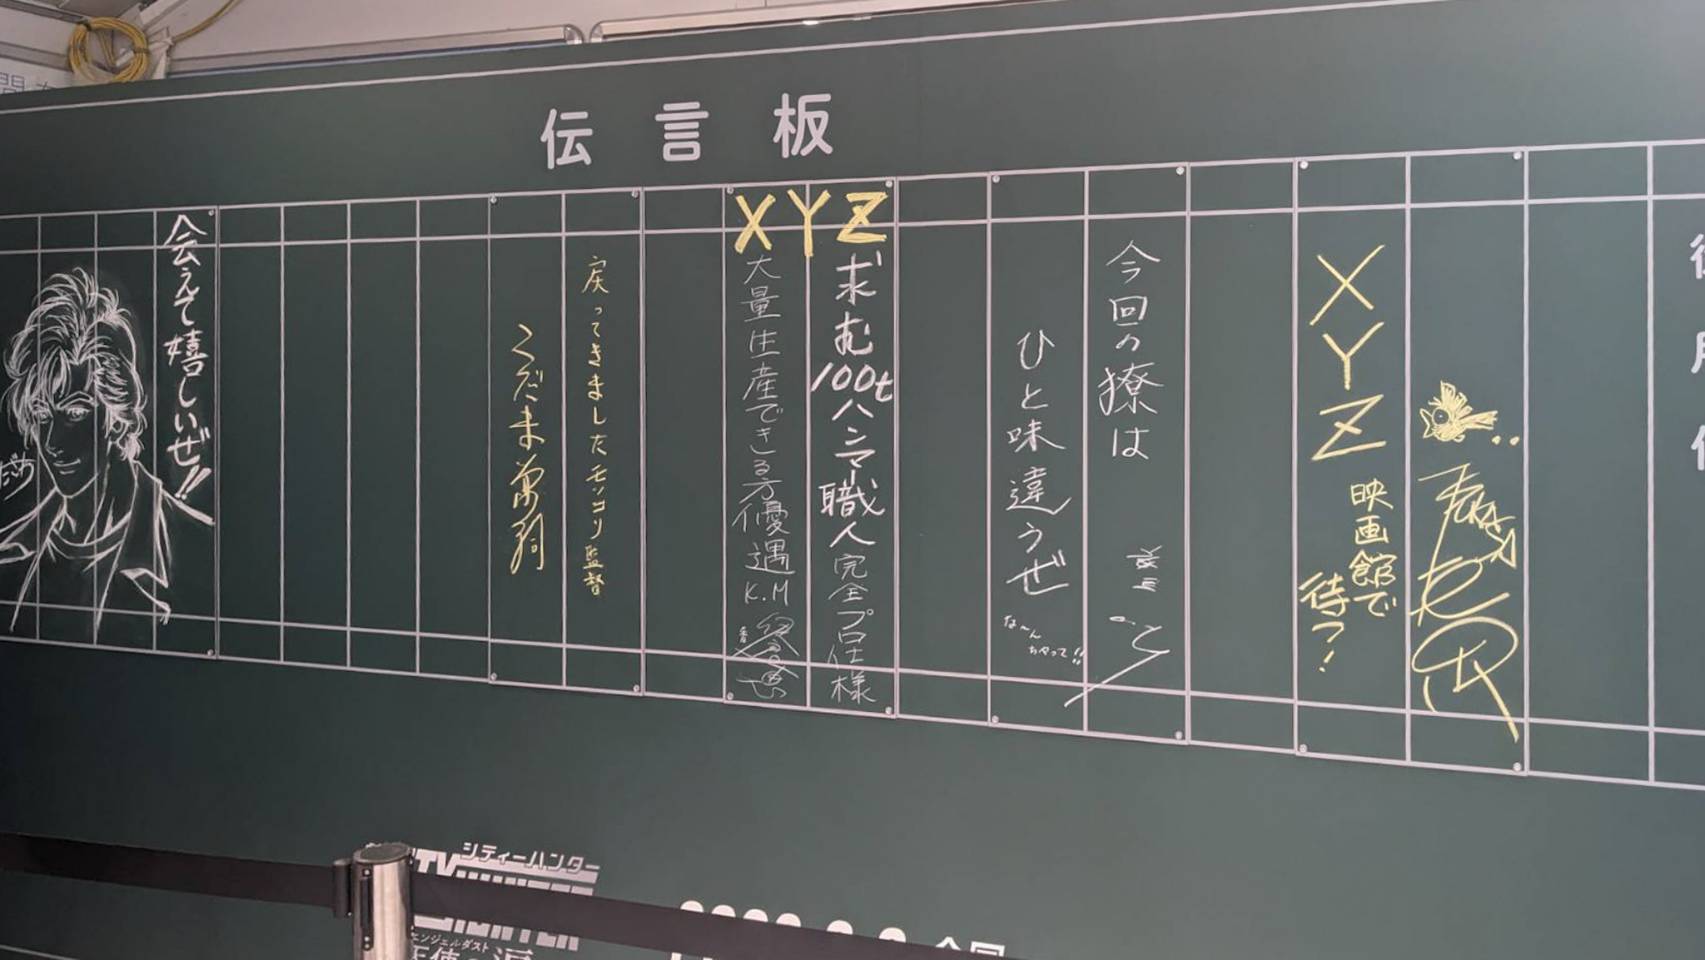 伝言板
XYZ
映画館で
待つ!
今回の獠は
ひと味違うぜ
な〜んちゃって!!
XYZ
求む100tハンマー職人完全プロ仕様
大量生産できる方優遇K.M
戻ってきましたモッコリ監督
こだま兼嗣
会えて嬉しいぜ!!
シティーハンター
エンジェルダスト